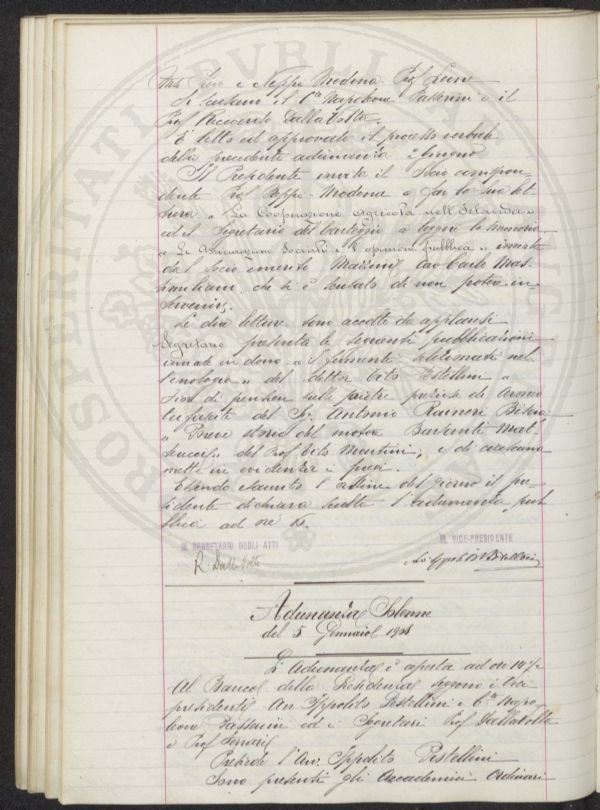 e Neppi Modona Prof Leone
Si scusano il Cte Napoleone Passerini e il
Prof Riccardo Dalla Volta.
È letto ed approvato il processo verbale
della precedente adunanza 2 Giugno
Il Presidente invita il Socio corrispon-
dente Prof Neppi-Modona a far la sua let-
tura "La Cooperazione Agricola nell'Irlanda"
ed il Segretario del carteggio a leggere la memoria
"Le Assicurazioni Sociali e l'opinione pubblica" inviata
dal socio emerito Cav Carlo Mas-
similiani, che si è scusato di non poter in-
tervenire.
Le due letture sono accolte da applausi
Segretario presenta le seguenti pubblicazioni
inviate in dono. "I fermenti selezionati nel
l'enologia" del dottor Vito Pestellini "
Fior di pensieri sulle pietre preziose di Ahmed
Teifascite del Sig. Antonio Raineri Biscia
" Breve storia del motore Barsanti Mat-
teucci" del Prof Vito Martini; e di ciascuna
mette in evidenza i pregi.
Essendo esaurito l'ordine del giorno il pre-
sidente dichiara sciolta l'adunanza pub
blica ad ore 15.
IL SEGRETARIO DEGLI ATTI IL VICE-PRESIDENTE
R. Dalla Volta
Adunanza Solenne
del 5 Gennaio 1908
L'Adunanza è aperta ad ore 10½
Al Banco della Presidenza seggono i Vice
presidenti Avv Ippolito Pestellini e Cte Napo-
leone Passerini ed i Segretari Prof Dalla Volta
e Prof Ferrari
Presiede l'Avv. Ippolito Pestellini
Sono presenti gli Accademici Ordinari